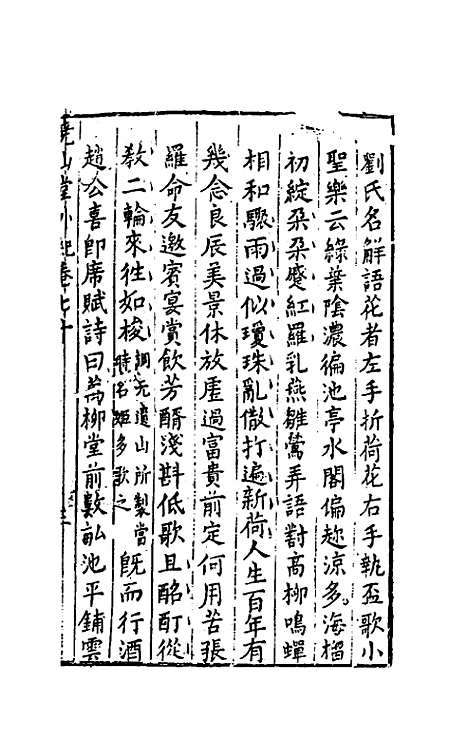 劉氏名觧語花者左手折荷花右手執盃歌小
聖樂云綠葉陰濃徧池亭水閣偏趂涼多海榴
初綻朶朶蹙紅羅乳燕雛鶯弄語對高柳鳴蟬
相和驟雨過似瓊珠亂撒打遍新荷人生百年有
幾念良辰美景休放虛過富貴前定何用苦張
羅命友邀賓宴賞飲芳醑淺斟低歌且酩酊從
教二輪來徃如梭調元遺山所製當時名姬多歌之既而行酒
趙公喜卽席賦詩曰萬柳堂前數畝池平鋪雲
堯山堂外紀卷七十